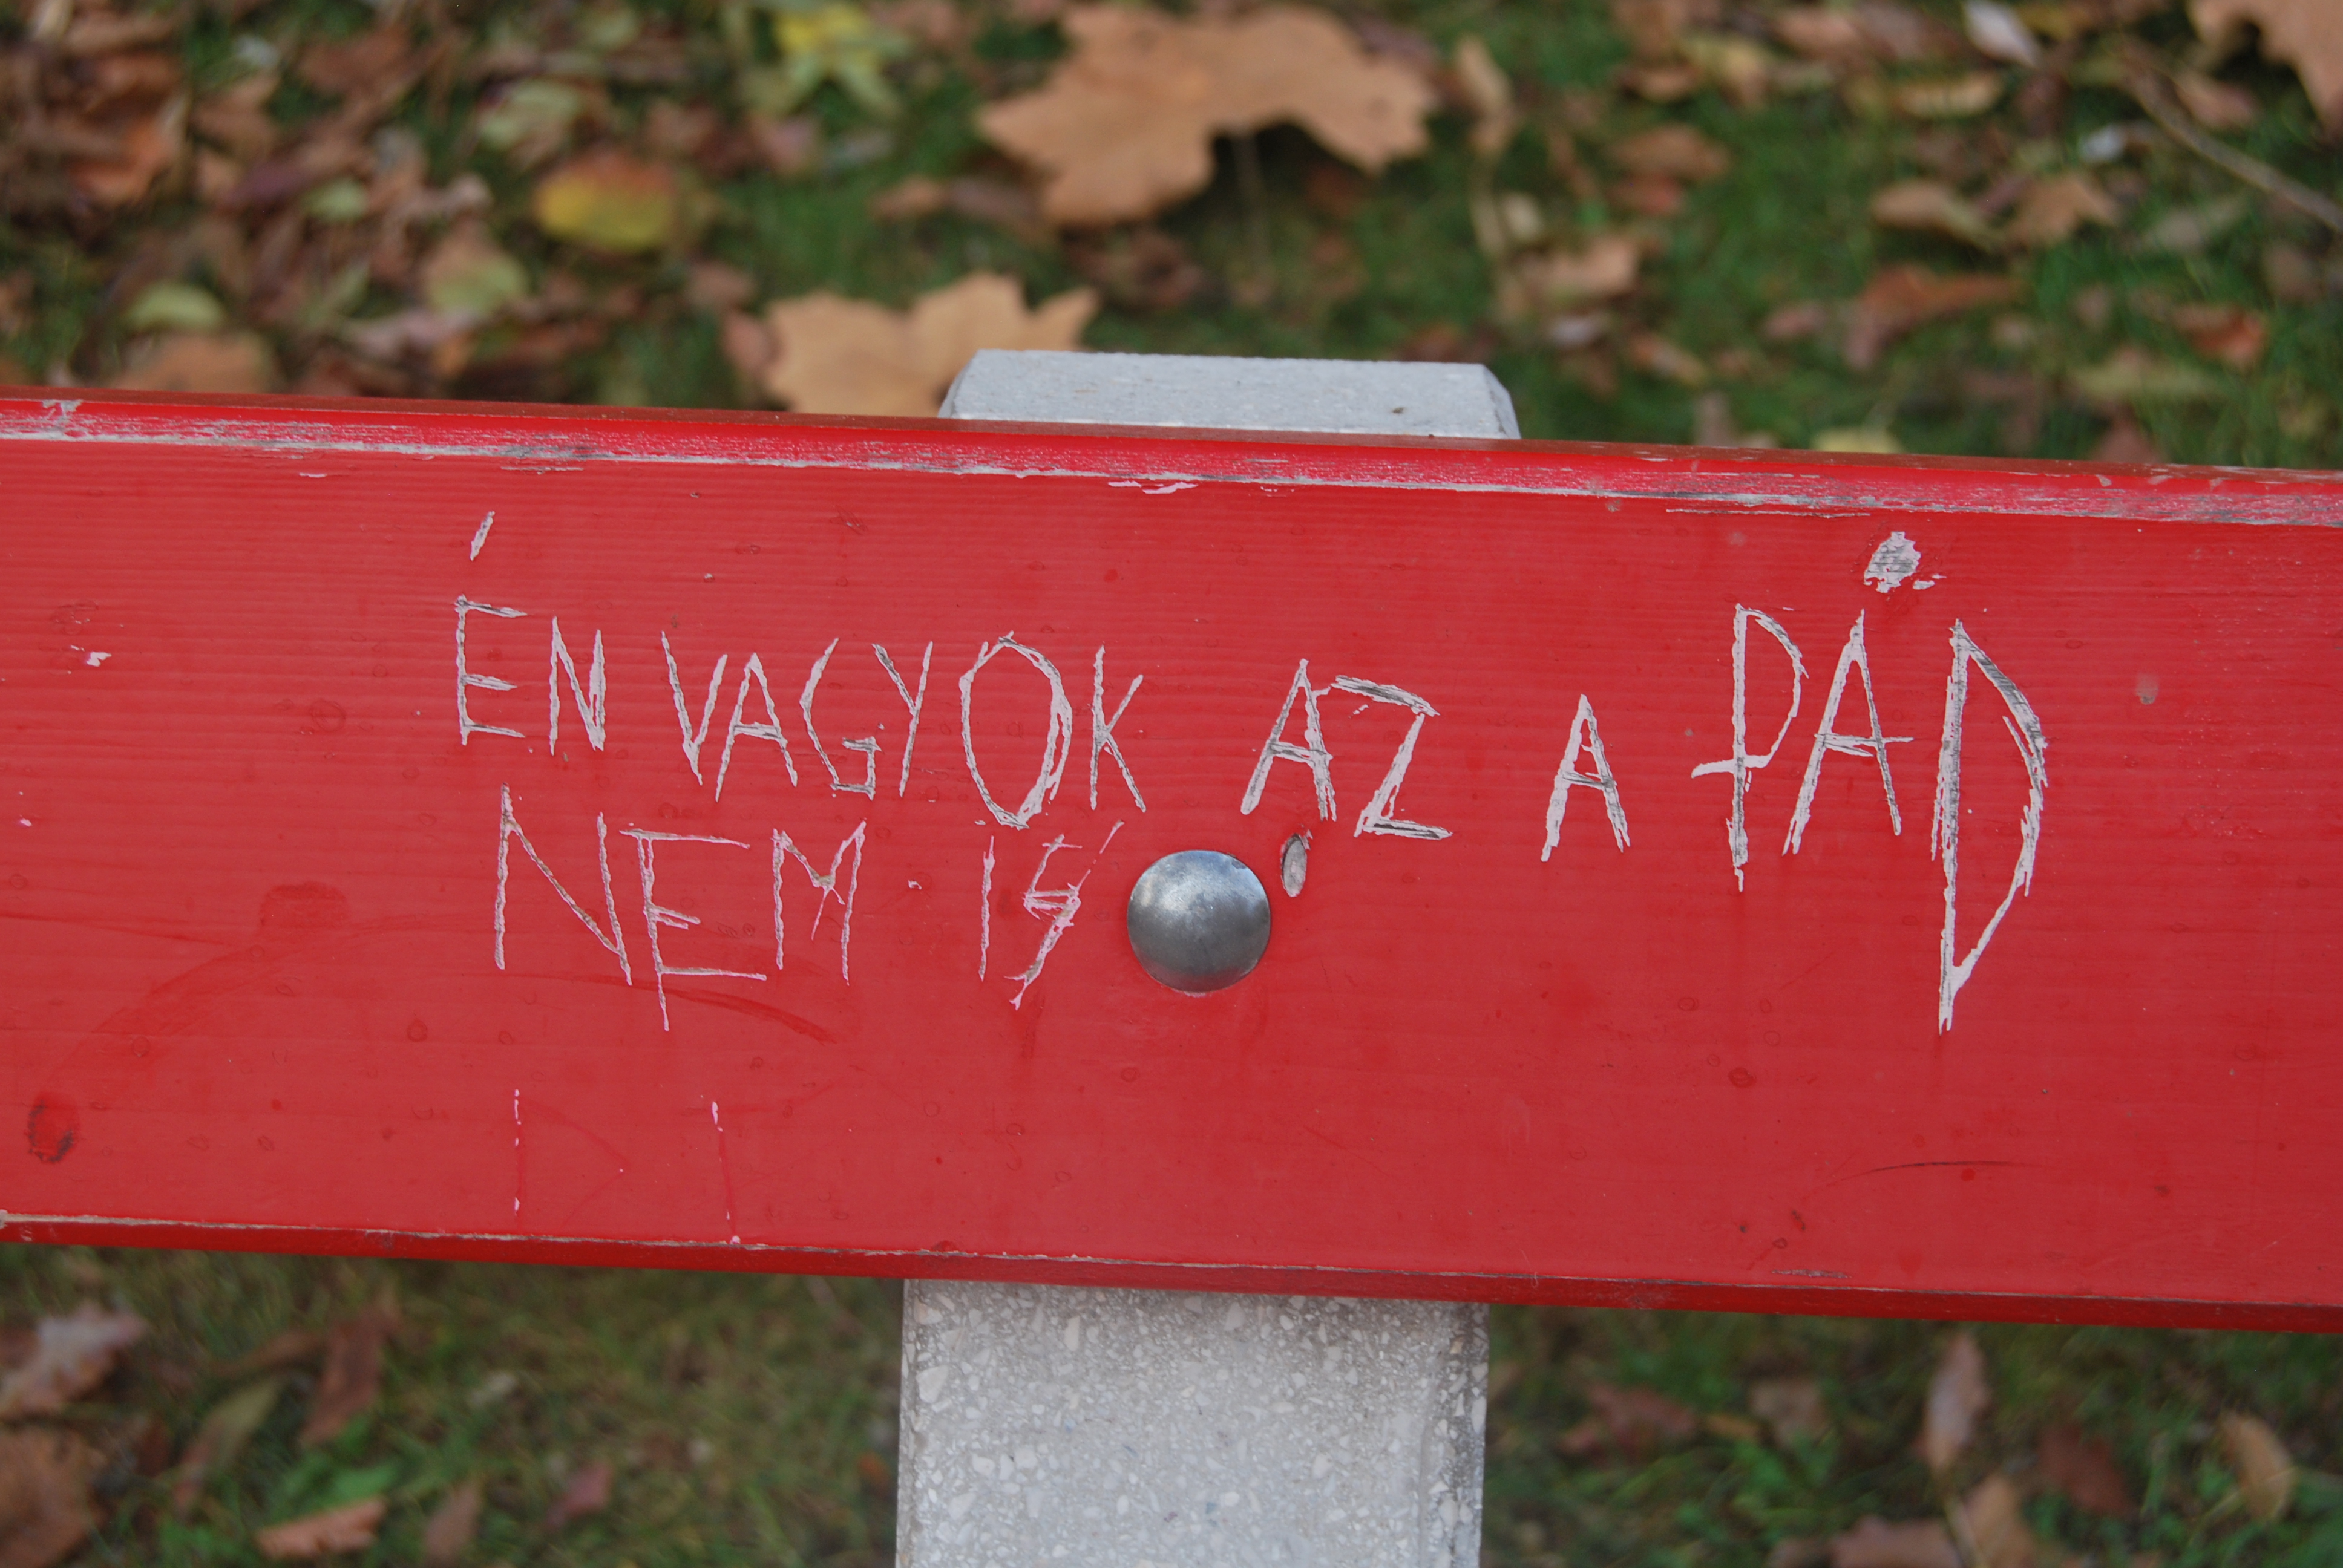 ÉN VAGYOK AZ A PÁD
NEM IS